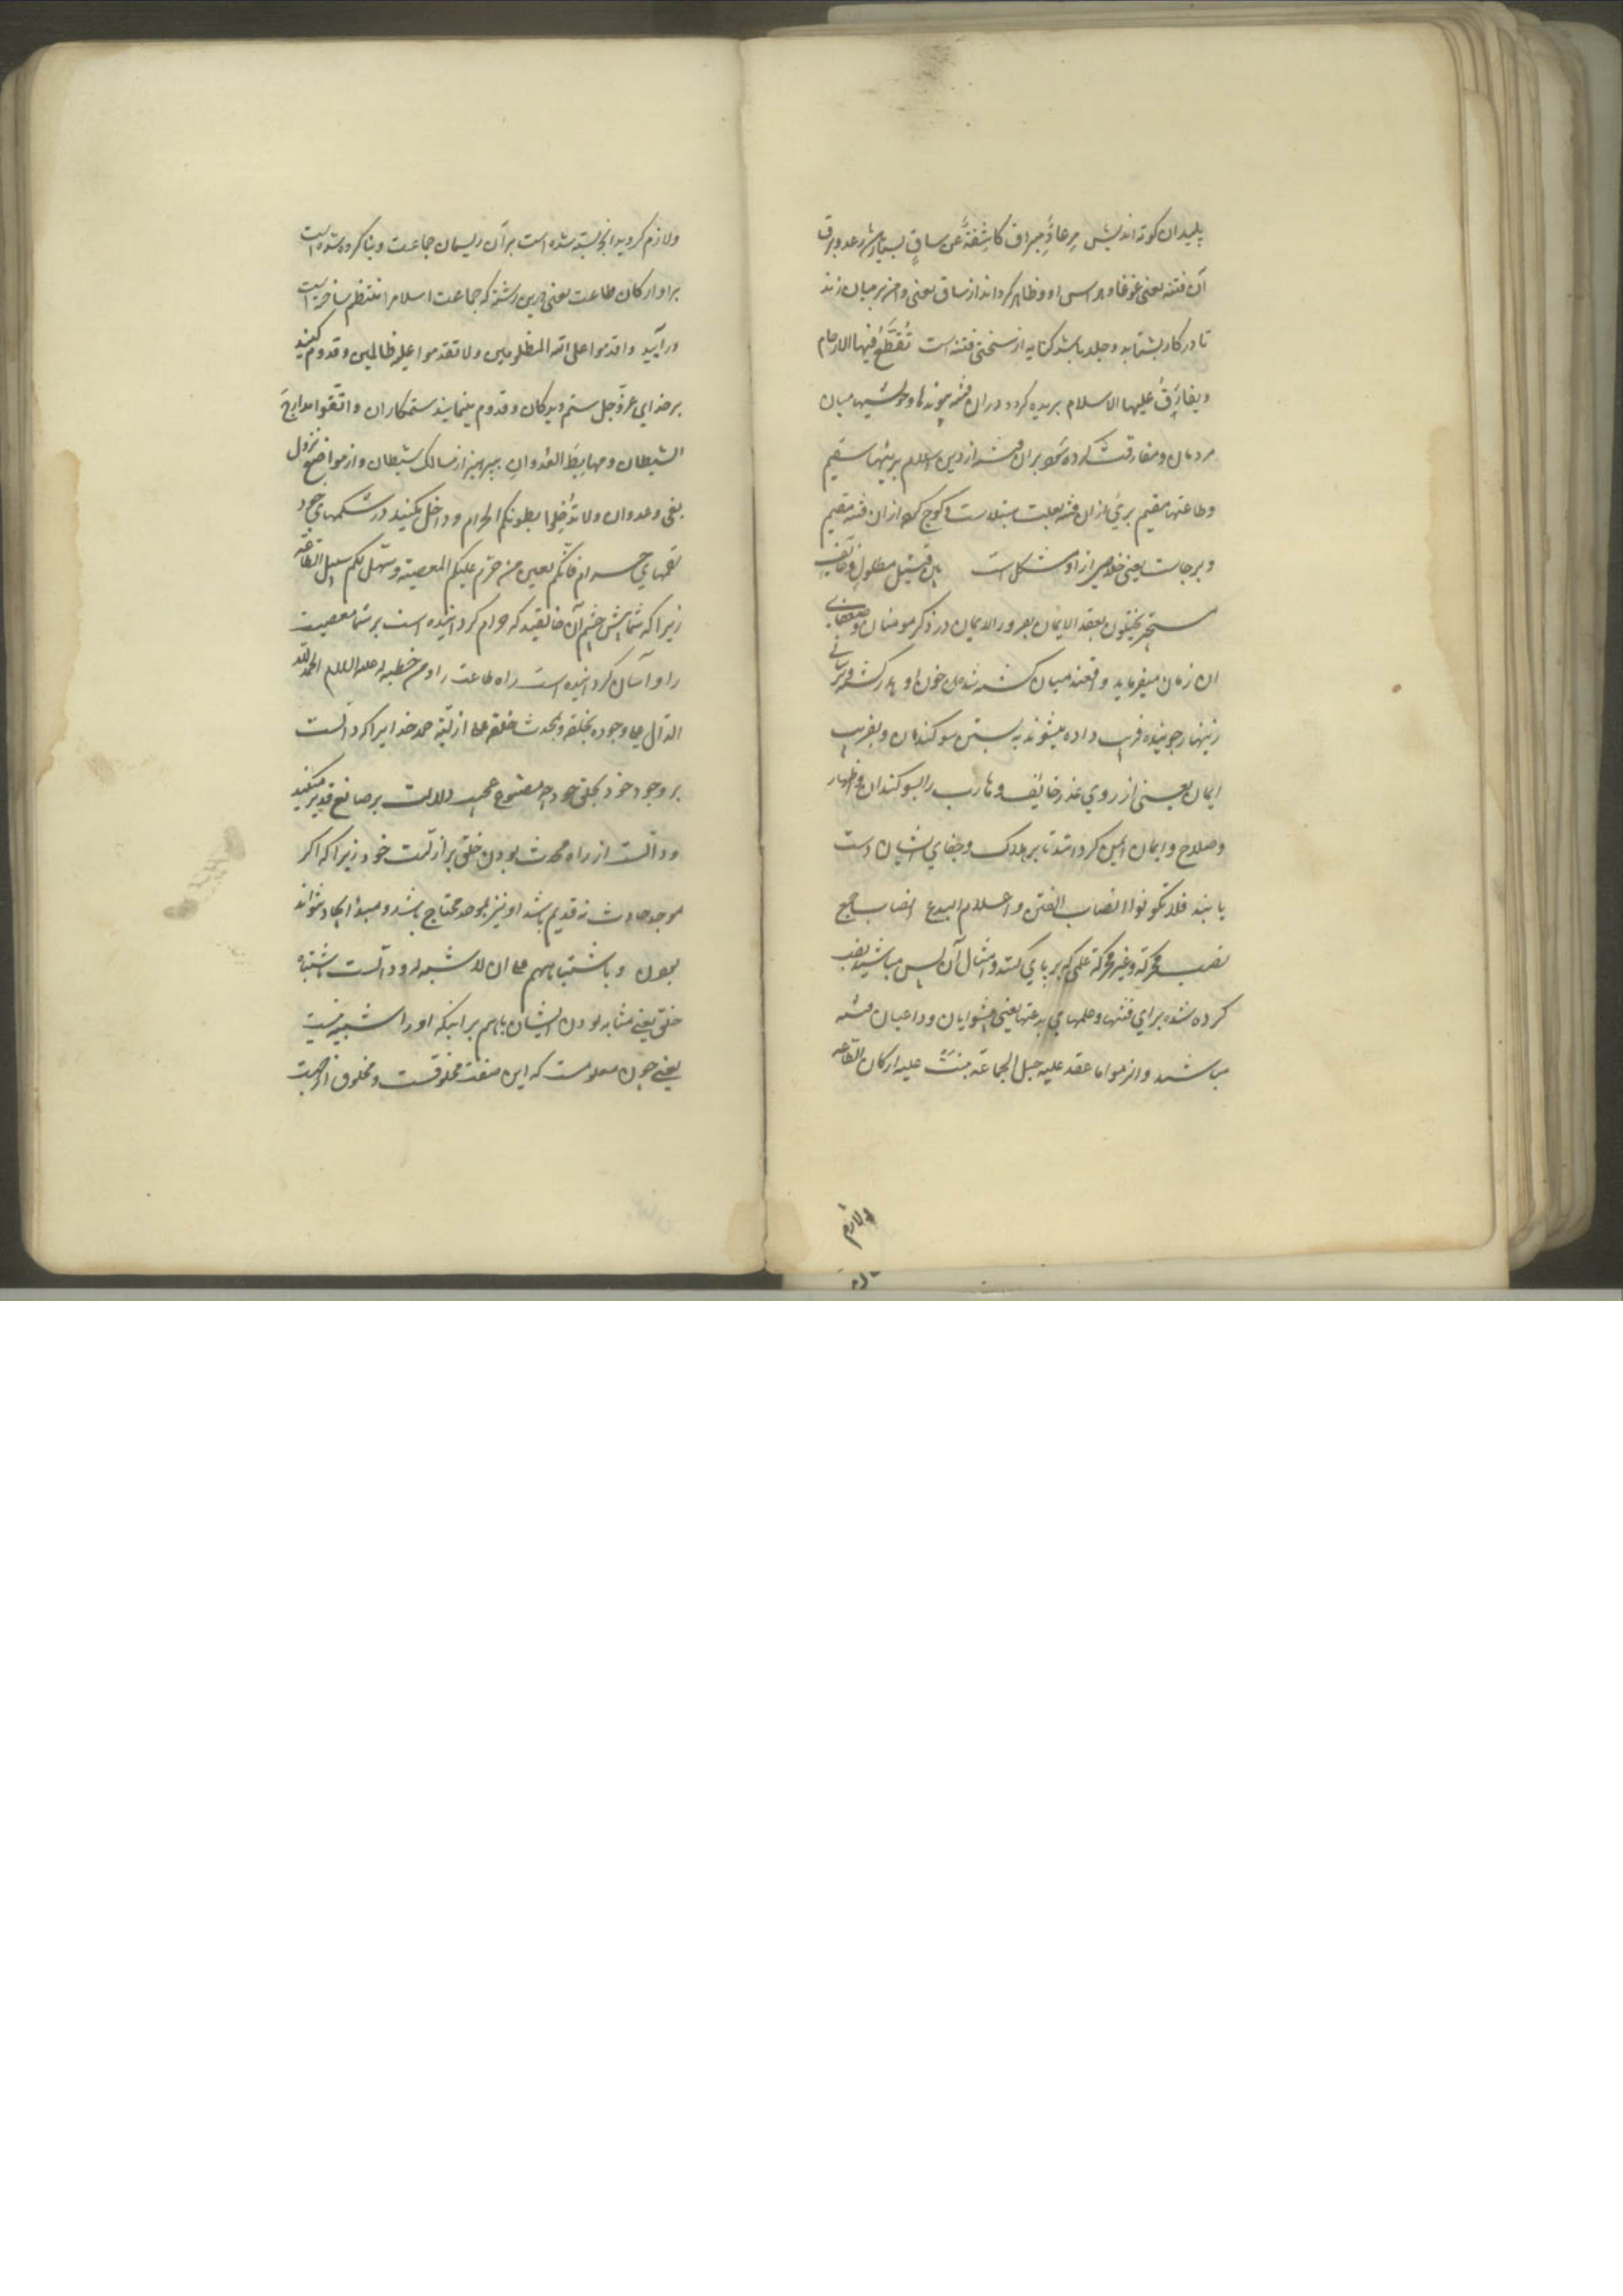 پلیدان کوته اندیش مِرعادٌ مِبراق کاشِفَةٌ عَن ساقٍ بسیار رعد و برق
آن فتنه یعنی غوغا و هراس او و ظاهر کرداند از ساق یعنی دامن بر میان زند
تا در کار بشتابد و جلد باشد کنایه از سختی فتنه است تُقطَّعُ فیها الارحام
ویفارَقُ علیها الاسلام بریده کردد در ان فتنه پیوندها و خویشیها میان
مردمان و مفارقت کرده شود بر ان فتنه از دین اسلام بریئها سقیم
وظاعنها مقیم بریء از ان فتنه بعلت مبتلاست و کوچ کننده از ان فتنه مقیم
و برجاست یعنی خلاصی از او مشکل است بین قتیل مطلول و خائف
مستجیر یختلون بعقد الایمان بغرور الایمان در ذکر مومنان
ان زمان میفرماید واقعند میان کشته شده
زینهار جوینده فریب داده میشوند به بستن سوکندان و بفریب
ایمان یعنی از روی غدر خائف و هارب را بسوکندان و اظهار
وصلاح و ایمان ایمن کردانند تا بر هلاک و جفای ایشان دست
یابند فلا تکونوا انصاب الفتن واعلام البدع انصاب جمع
نصب محرکة وغیر محرکة علمی که بر پای کنند و امثال آن پس مباشید نصب
کرده شده برای فتنها و علمهای بدعتها یعنی پیشوایان و داعیان فتنه
مباشید والزموا ما عقد علیه حبل الجماعة بنیت علیه ارکان الطاعه
ولازم
ولازم کردید انچه بسته شده است بر آن ریسمان جماعت و بنا کرده شده است
بر او ارکان طاعت یعنی درین رشته که جماعت اسلام را منتظم ساخته است
درآیید واقدموا علی الله المظلومین ولا تقدموا علیه ظالمین و قدوم کنید
بر خدای عزوجل ستم دیدکان و قدوم منمایید ستمکاران واتقوا مدارج
الشیطان ومهابِطَ العُدوانِ بپرهیز از مسالک شیطان و از مواضع نزول
بغی و عدوان ولا تُدخِلوا بطونکم الحرام و داخل مکنید در شکمهای خود
لقمهای حرام فانّکم بعین من حرّم علیکم المعصیة وسهّل لکم سبیل الطاعة
زیرا که شما پیش چشم آن خالقید که حرام کردانیده است بر شما معصیت
را و آسان کردانیده است راه طاعت را ومن خطبه له علیه السلام الحمد لله
الدال علی وجوده بخلقه وبمحدث خلقه علی ازلیته حمد خدایرا که دالست
بر وجود خود بخلق خود چه مصنوع عجیب دلالت بر صانع قدیر میکند
ودالست از راه محدث بودن خلق بر ازلیت خود زیرا که اکر
موجد حادث نه قدیم باشد او نیز بموجد محتاج باشد و مبدأ ایجاد نتواند
بود و باشتباههم علی ان لا شبه له و دالست باشتباه
خلق یعنی مشابه بودن ایشان باهم بر اینکه او را شبیه نیست
یعنی چون معلومست که این صفت مخلوقست و مخلوق از جهت